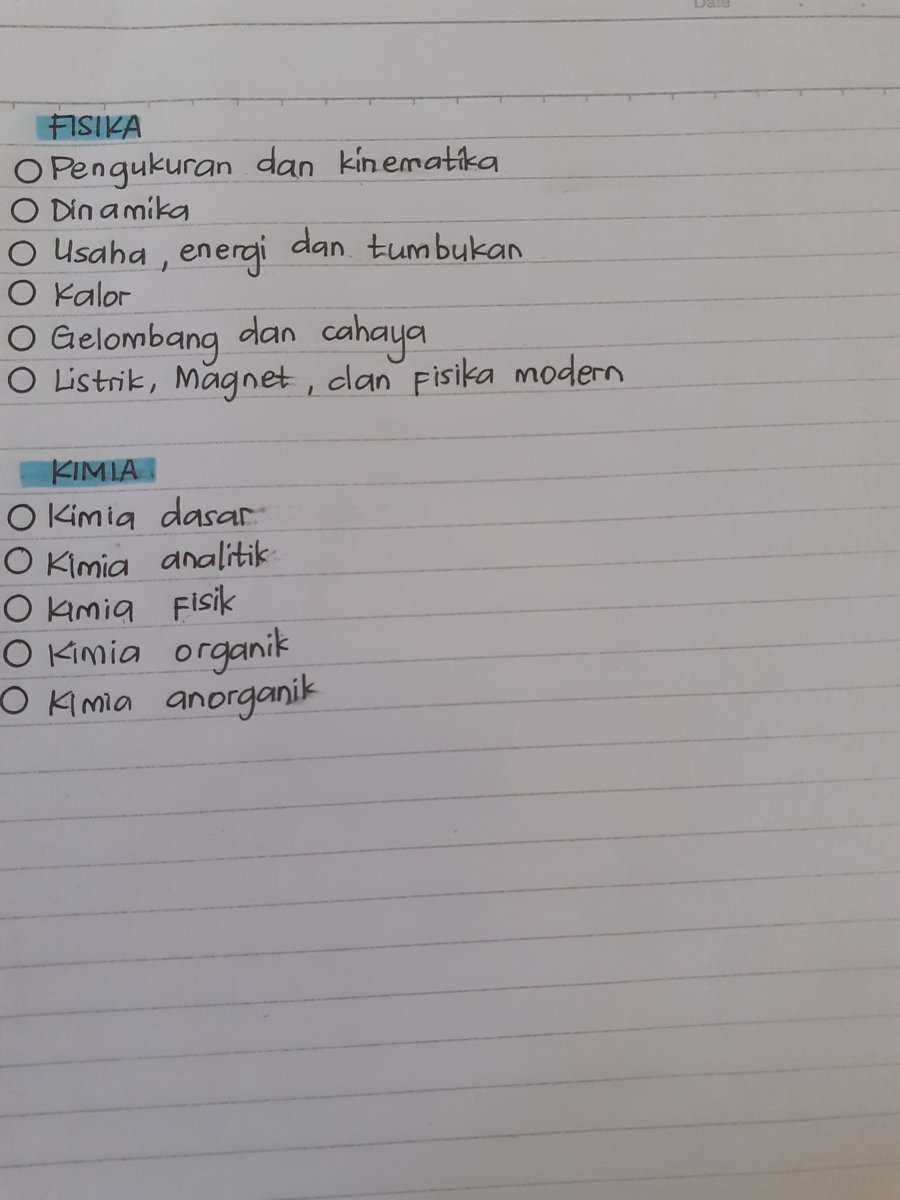 Date
FISIKA
Pengukuran dan kinematika
Dinamika
Usaha, energi dan tumbukan
Kalor
Gelombang dan cahaya
Listrik, Magnet, dan Fisika modern
KIMIA
Kimia dasar
Kimia analitik
Kimia Fisik
Kimia organik
Kimia anorganik